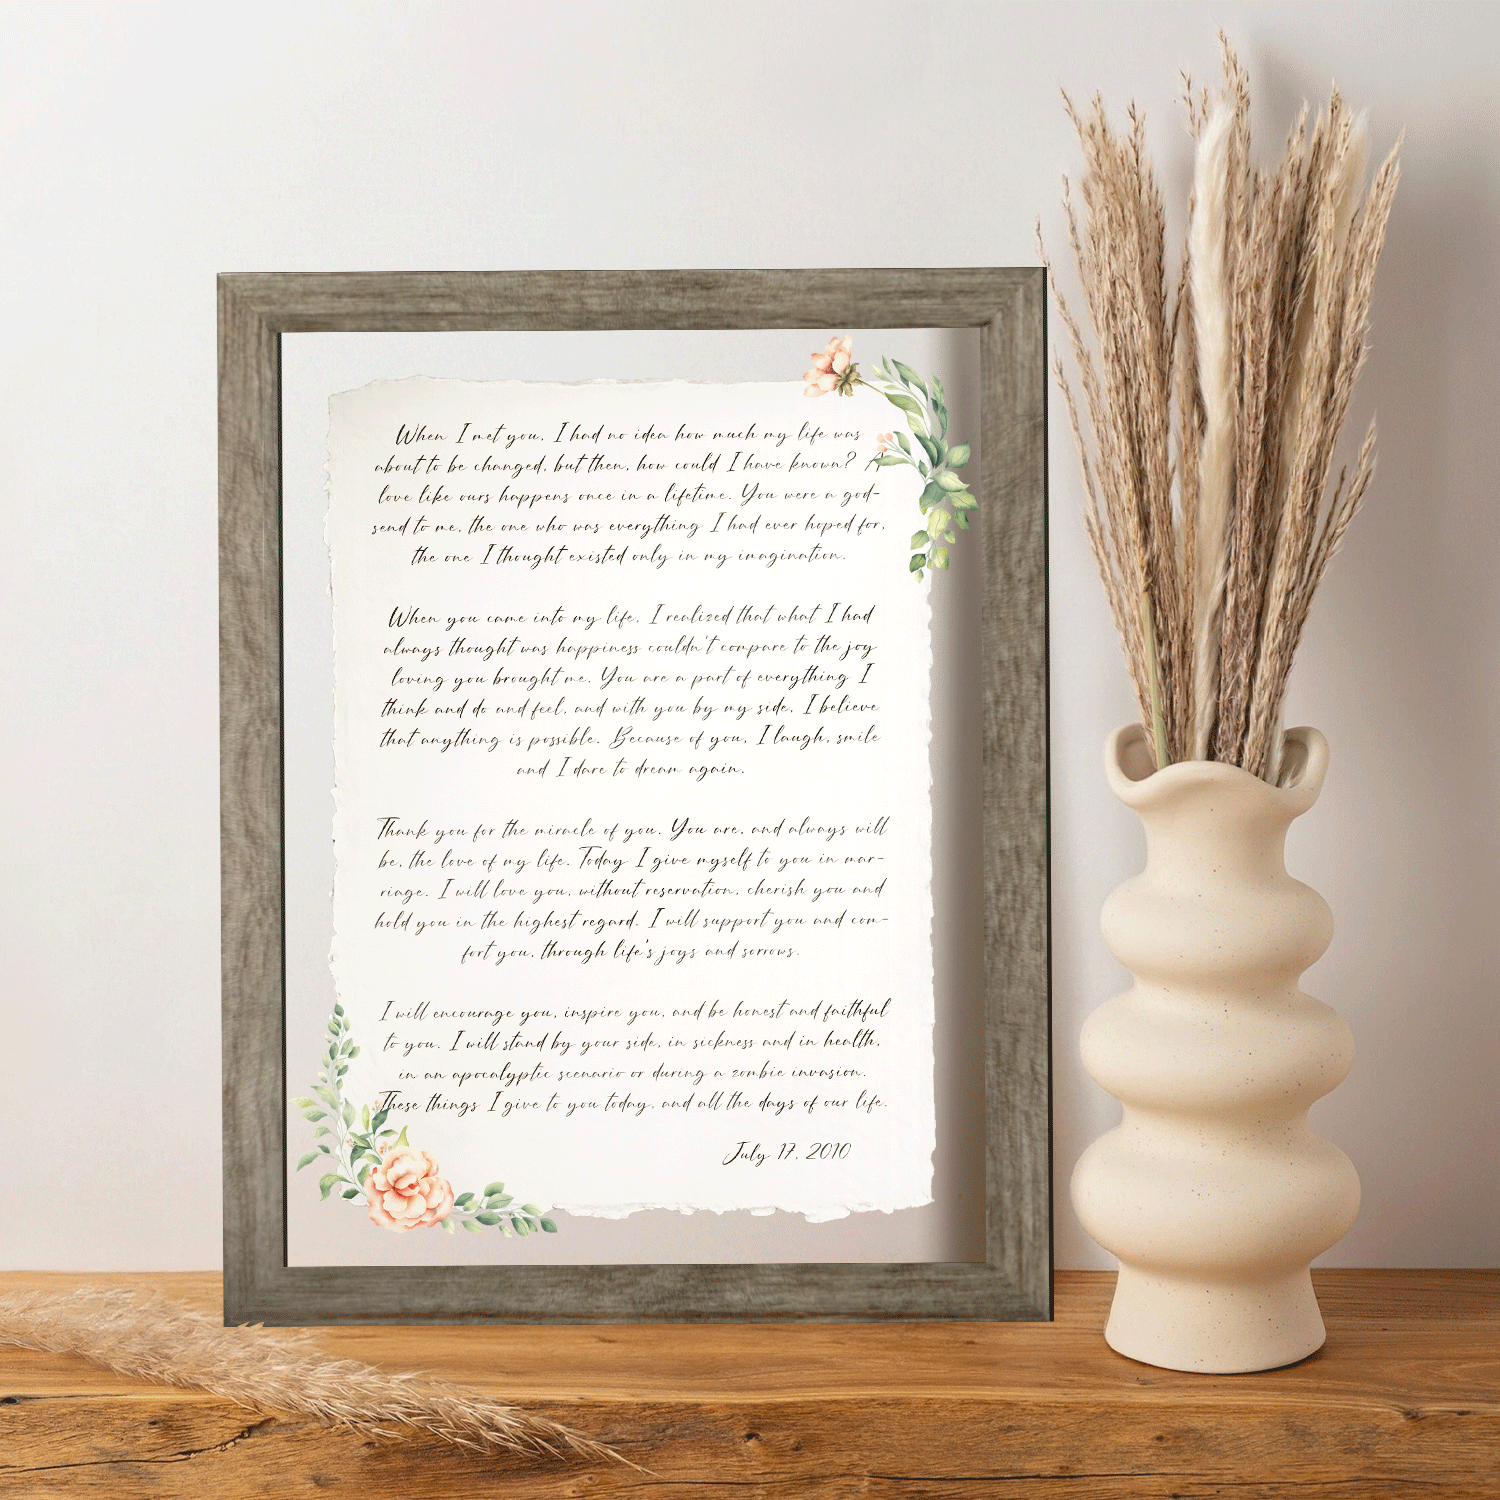 When I met you, I had no idea how much my life was
about to be changed, but then, how could I have known? A
love like ours happens once in a lifetime. You were a god-
send to me, the one who was everything I had ever hoped for,
the one I thought existed only in my imagination.
When you came into my life, I realized that what I had
always thought was happiness couldn't compare to the joy
loving you brought me. You are a part of everything I
think and do and feel, and with you by my side, I believe
that anything is possible. Because of you, I laugh, smile
and I dare to dream again.
Thank you for the miracle of you. You are, and always will
be, the love of my life. Today I give myself to you in mar-
riage. I will love you, without reservation, cherish you and
hold you in the highest regard. I will support you and com-
fort you, through life's joys and sorrows.
I will encourage you, inspire you, and be honest and faithful
to you. I will stand by your side, in sickness and in health,
in an apocalyptic scenario or during a zombie invasion.
These things I give to you today, and all the days of our life.
July 17, 2010